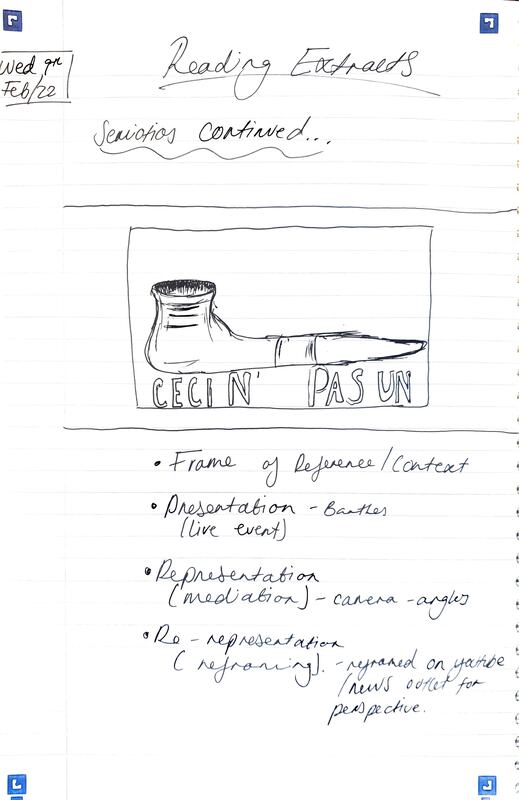 Wed 9th
Feb/22
Reading Extracts
Semiotios continued...
CECI N' PAS UN
• Frame of Reference/Context
• Presentation - Barthes
(live event)
• Representation
(mediation) - camera - angles
• Re - representation
(reframing). - reframed on youtube
/news outlet for
perspective.